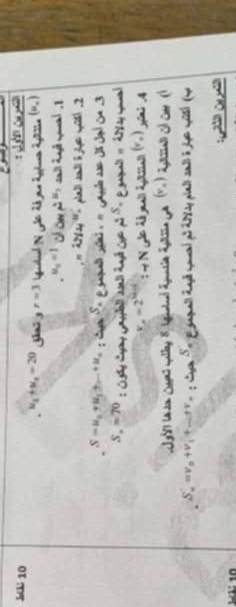 التمرين الأول : 10 نقاط
(uₙ) متتالية حسابية معرفة على N أساسها r = 3 و تحقق u₂ + u₅ = 20 .
1. أحسب قيمة الحد u₃ ثم بين أن u₀ = 1 .
2. أكتب عبارة الحد العام uₙ بدلالة n .
3. من أجل كل عدد طبيعي n ، نعتبر المجموع Sₙ حيث : S = u₀ + u₁ + ... + uₙ .
أحسب بدلالة n المجموع Sₙ ثم عين قيمة العدد الطبيعي بحيث يكون : Sₙ = 70
4. نعتبر (vₙ) المتتالية المعرفة على N بـ :
أ) بين أن المتتالية (vₙ) هي متتالية هندسية أساسها 8 يطلب تعيين حدها الأول.
ب) أكتب عبارة الحد العام بدلالة n ثم أحسب قيمة المجموع Sₙ حيث : Sₙ = v₀ + v₁ + ... + vₙ .
التمرين الثاني: 10 نقاط